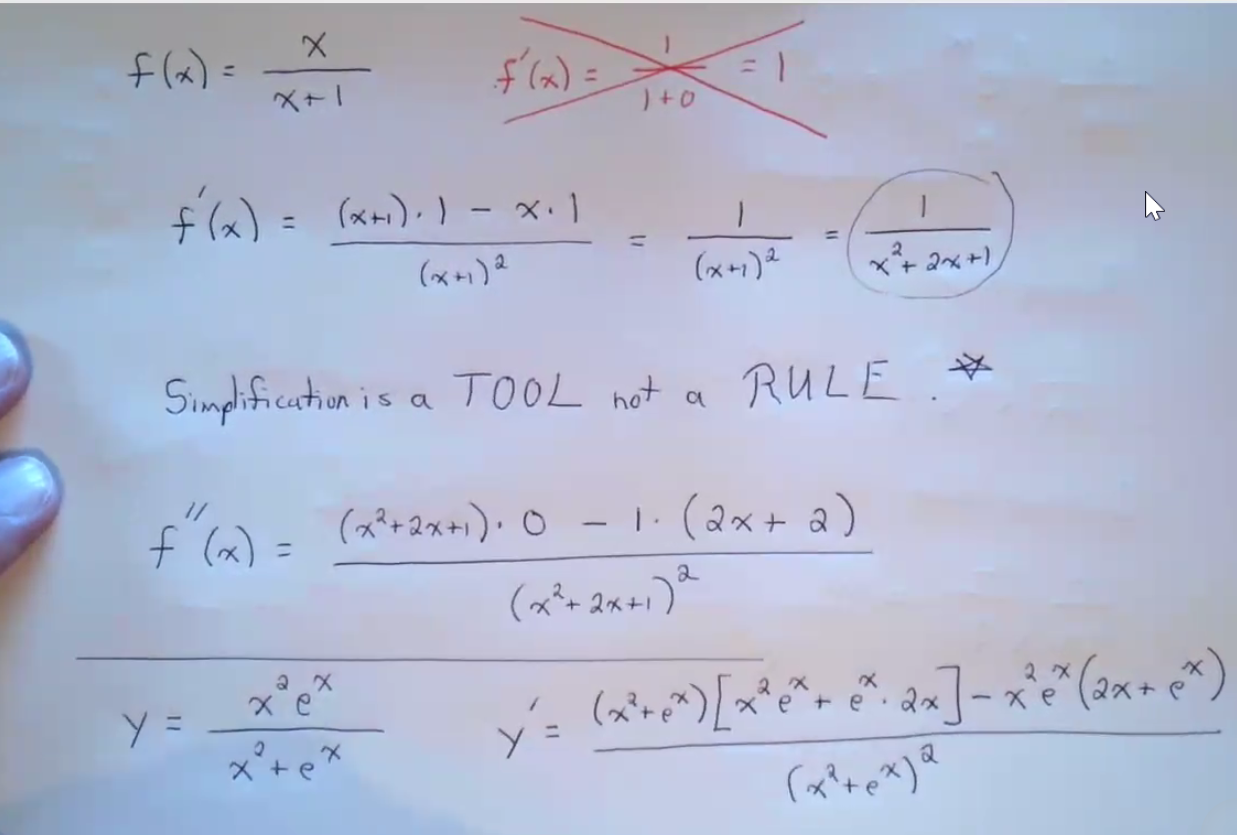 f(x) = x/(x+1)    f'(x) = 1/(1+0) = 1
f'(x) = ((x+1)·1 - x·1)/(x+1)² = 1/(x+1)² = 1/(x²+2x+1)
Simplification is a TOOL not a RULE.
f''(x) = ((x²+2x+1)·0 - 1·(2x+2))/(x²+2x+1)²
y = x²eˣ/(x²+eˣ)    y' = ((x²+eˣ)[x²eˣ+eˣ·2x] - x²eˣ(2x+eˣ))/(x²+eˣ)²